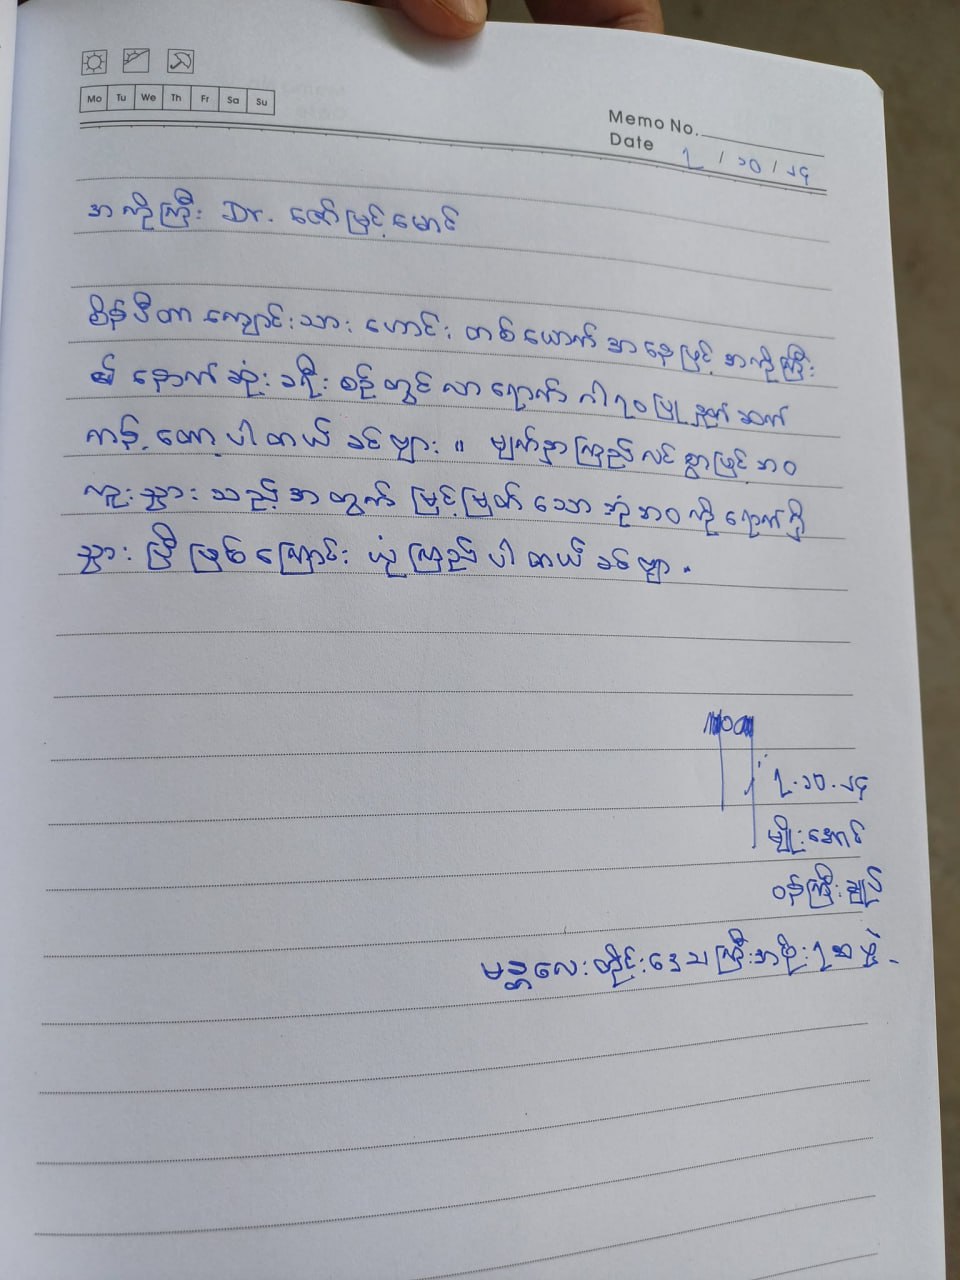 Mo Tu We Th Fr Sa Su
Memo No.
Date ၇ / ၁၀ / ၂၄
အကိုကြီး Dr. ဇော်မြင့်မောင်
စိန်ပီတာ ကျောင်းသား ဟောင်း တစ်ယောက် အနေဖြင့် အကိုကြီး
၏ နောက်ဆုံး ခရီး စဉ် တွင် လာ ရောက် ဂါရဝပြု နှုတ်ဆက်
ကန့်တော့ ပါတယ် ခင်ဗျား ။ မျက်နှာကြည်လင်စွာဖြင့် ဘဝ
ကူးသွား သည့်အတွက် မြင့်မြတ်သော ဘုံဘဝ ကို ရောက်ရှိ
သွား ပြီ ဖြစ်ကြောင်း ယုံကြည် ပါတယ် ခင်ဗျာ .
၇.၁၀.၂၄
မျိုးအောင်
ဝန်ကြီးချုပ်
မန္တလေးတိုင်းဒေသကြီးအစိုးရအဖွဲ့